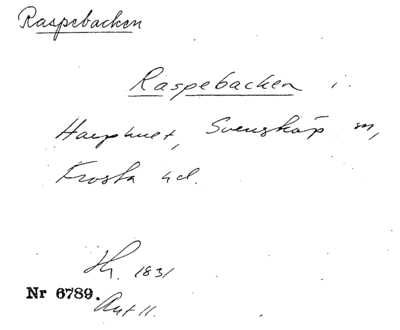 Raspebacken
Raspebacken i
Svenskøp sn,
Frosta hd.
1831
Nr 6789.
Ant 11.